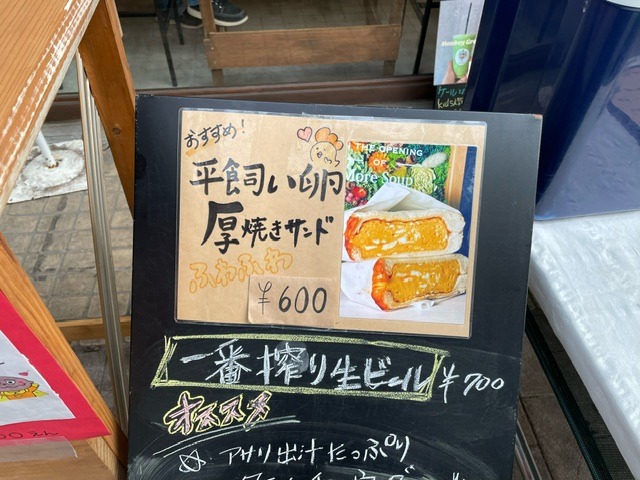 おすすめ!
平飼い卵
厚焼きサンド
ふわふわ
¥600
THE OPENING
OF
More Soup
一番搾り生ビール ¥700
オススメ
☆ アサリ出汁たっぷり